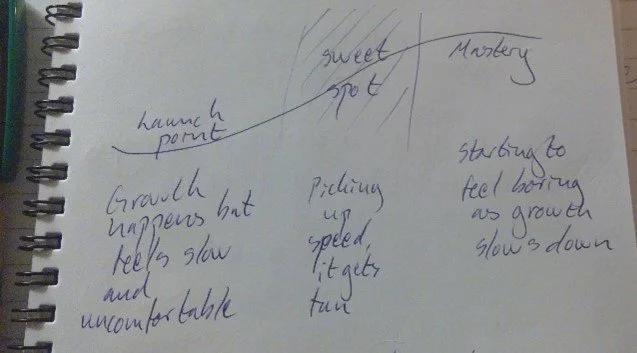 Launch
point
sweet
spot
Mastery
Growth
happens but
feels slow
and
uncomfortable
Picking
up
speed,
it gets
fun
starting to
feel boring
as growth
slows down